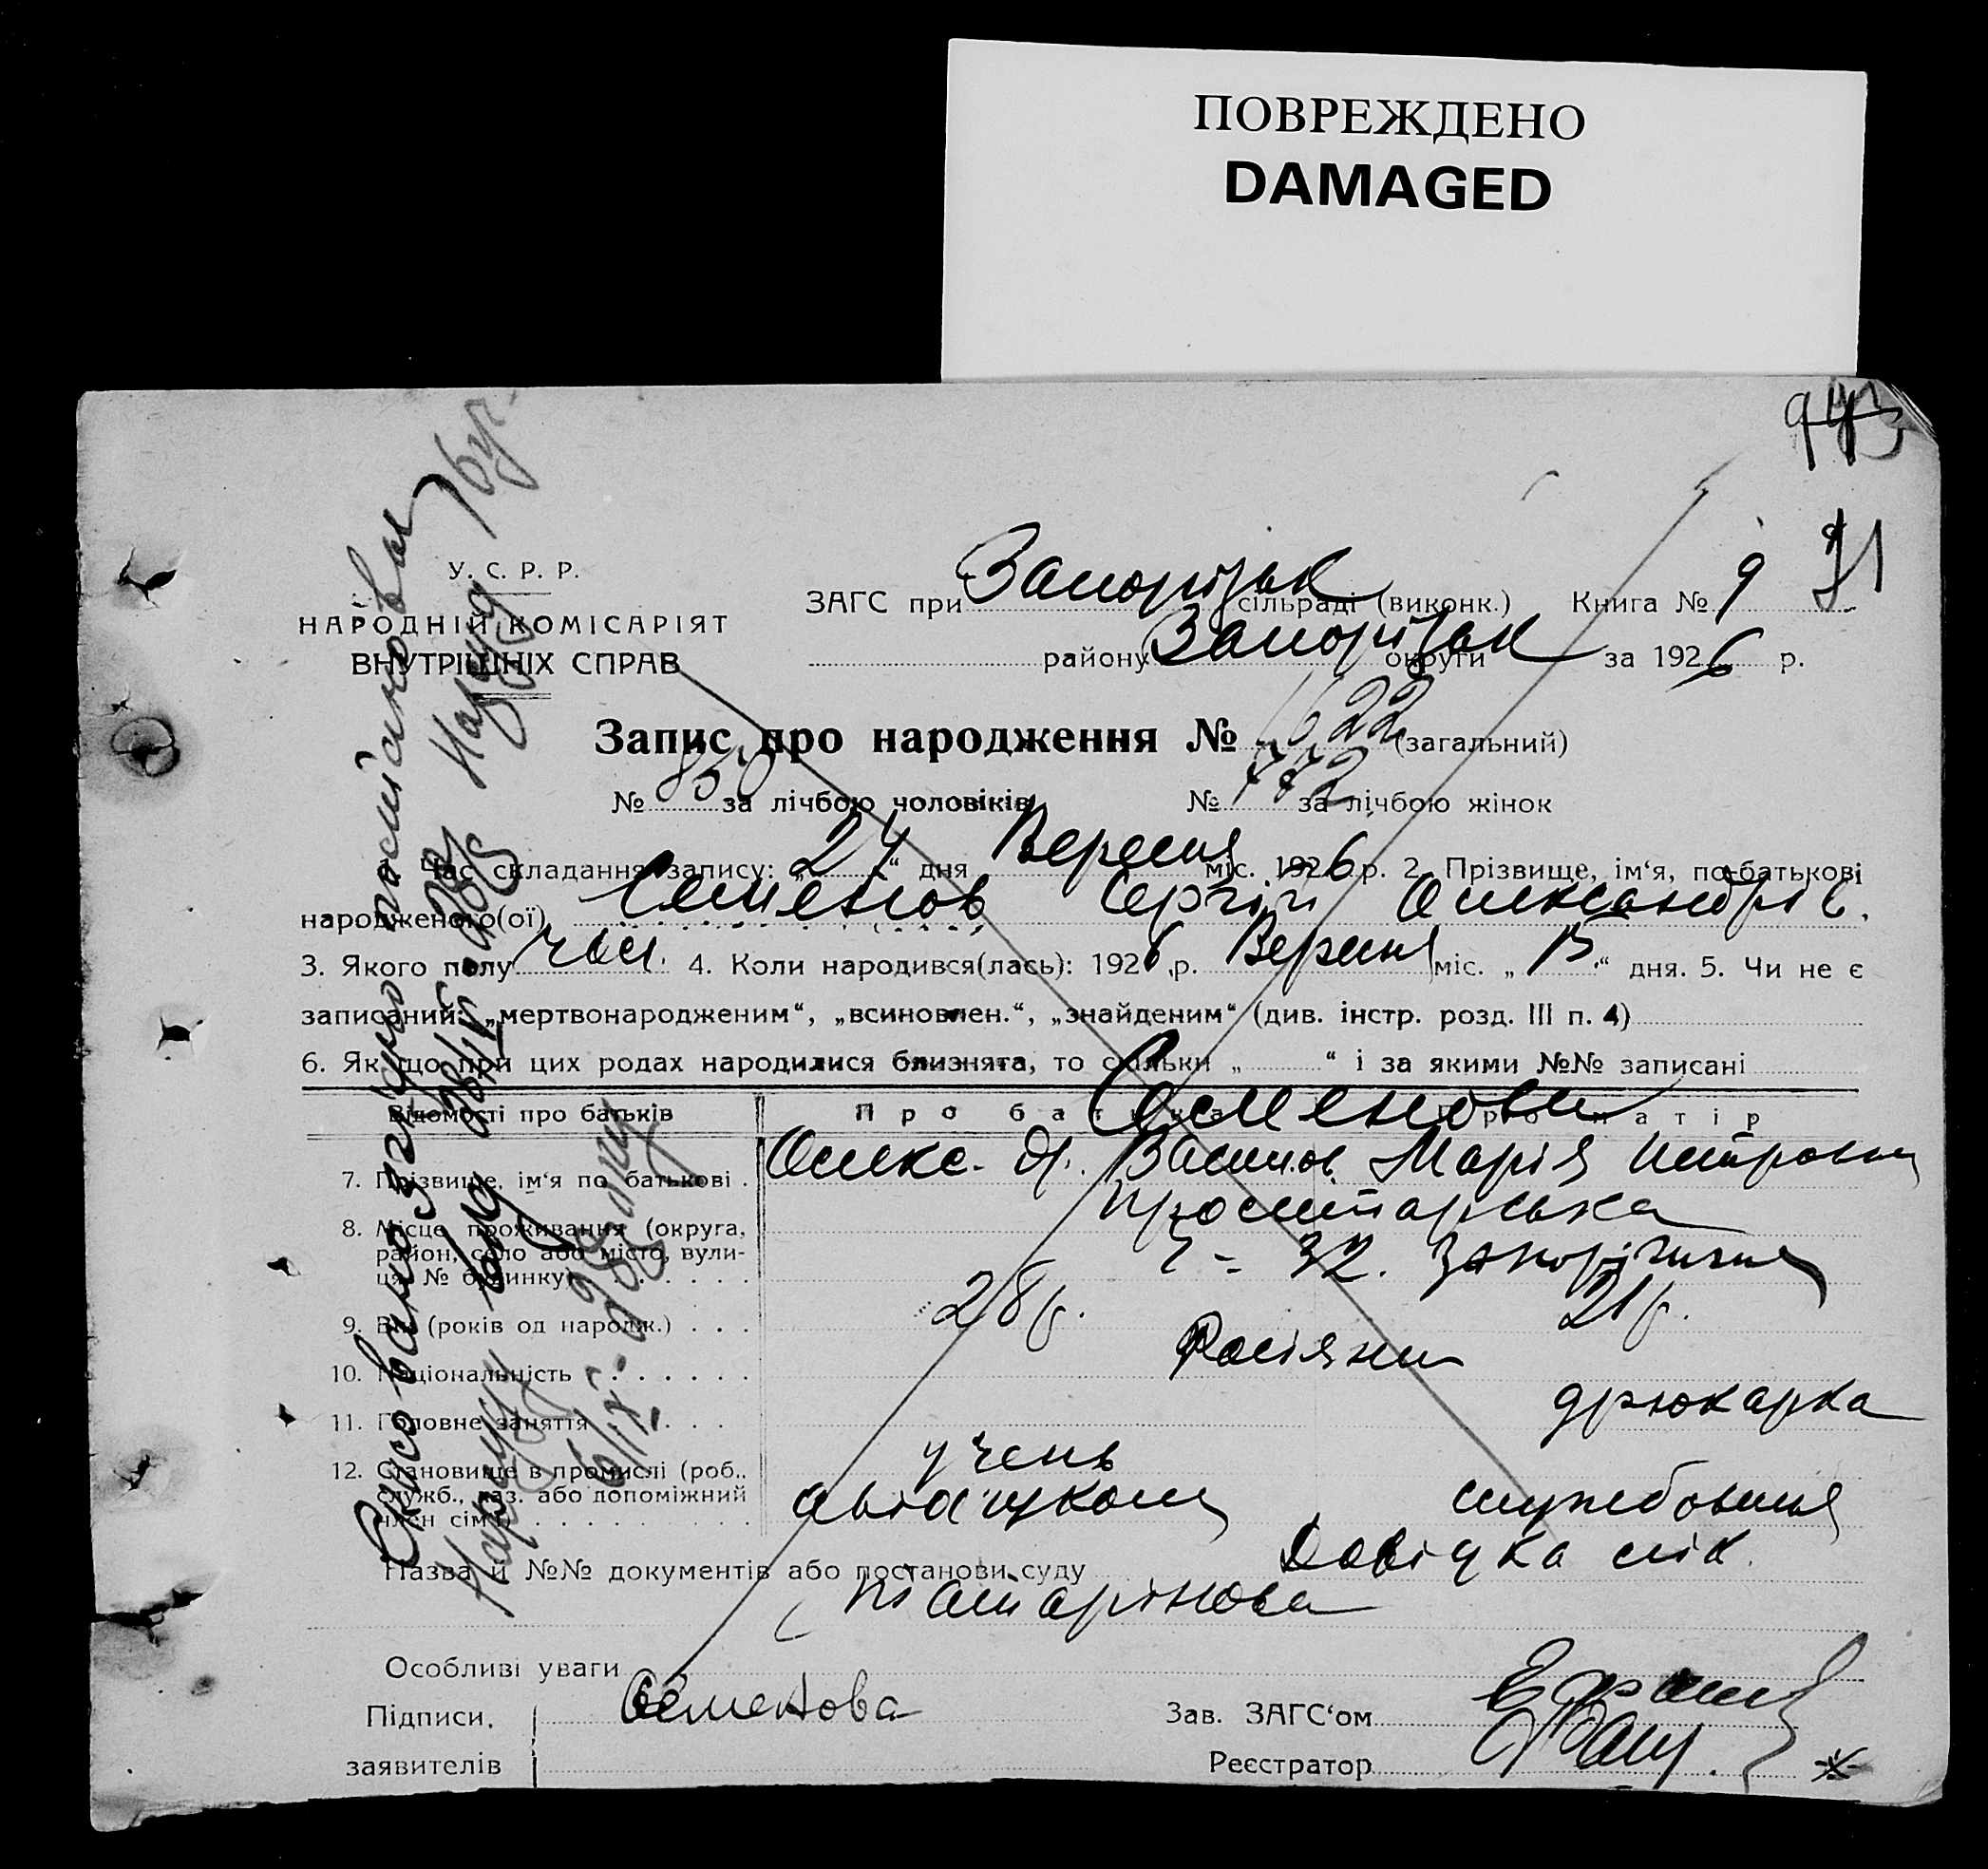 ПОВРЕЖДЕНО
DAMAGED
У. С. Р. Р.
НАРОДНІЙ КОМІСАРІЯТ
ВНУТРІШНІХ СПРАВ
ЗАГС при Запоріжськ сільраді (виконк.) Книга № 9
району Запоріжськ округи за 1926 р.
Запис про народження № 1622 (загальний)
№ 850 за лічбою чоловіків № 772 за лічбою жінок
1. Час складання запису: „24“ дня Вересня міс. 1926 р. 2. Прізвище, ім‘я, по-батькові
народженого(ої) Семенов Сергій Олександрів.
3. Якого полу чол. 4. Коли народився(лась): 1926 р. Вересня міс. „15“ дня. 5. Чи не є
записаний: „мертвонародженим“, „всиновлен.“, „знайденим“ (див. інстр. розд. III п. 4)
6. Як що при цих родах народилися близнята, то скільки „ “ і за якими №№ записані
Відомості про батьків Про батька Про матір
Семенови
7. Прізвище, ім‘я по батькові . Олекс-др. Марія Петровна
8. Місце проживання (округа, район, село або місто, вулиця, № будинку) Пролетарська
ч- 32. Запоріжжя
9. Вік (років од народж.) . . . 28 р. 21 р.
10. Національність Росіяни
11. Головне заняття дрюкарка
12. Становище в промислі (роб., служб., хаз. або допоміжний член сім‘ї) учень
службовиця
Назва й №№ документів або постанови суду Довідка лік.
Особливі уваги
Підписи Семенова Зав. ЗАГС‘ом
заявителів Реєстратор
Скасовано згідно постанови